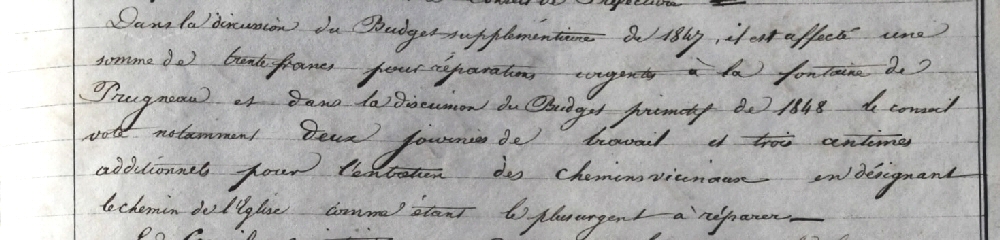 Conseil de Préfecture
Dans la discussion du Budget supplémentaire de 1847, il est affecté une
somme de trente francs pour réparations urgentes à la fontaine de
Prugneau et dans la discussion du Budget primitif de 1848 le conseil
vote notamment deux journées de travail et trois centimes
additionnels pour l'entretien des chemins vicinaux en désignant
le chemin de l'Eglise comme étant le plus urgent à réparer